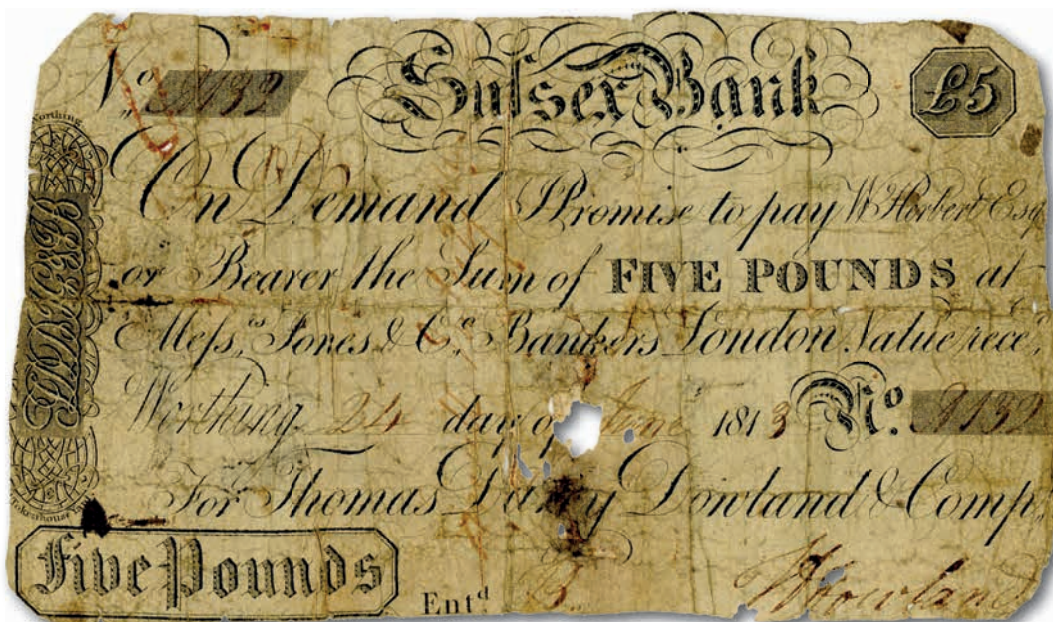 No 9132 Sussex Bank £5
On Demand I Promise to pay W Herbert Esqr
or Bearer the Sum of FIVE POUNDS at
Messrs Jones & Co Bankers London Value reced
Worthing 24 day of June 1813 No. 9132
For Thomas Dowland & Compy
Five Pounds Entd Dowland
Worthing